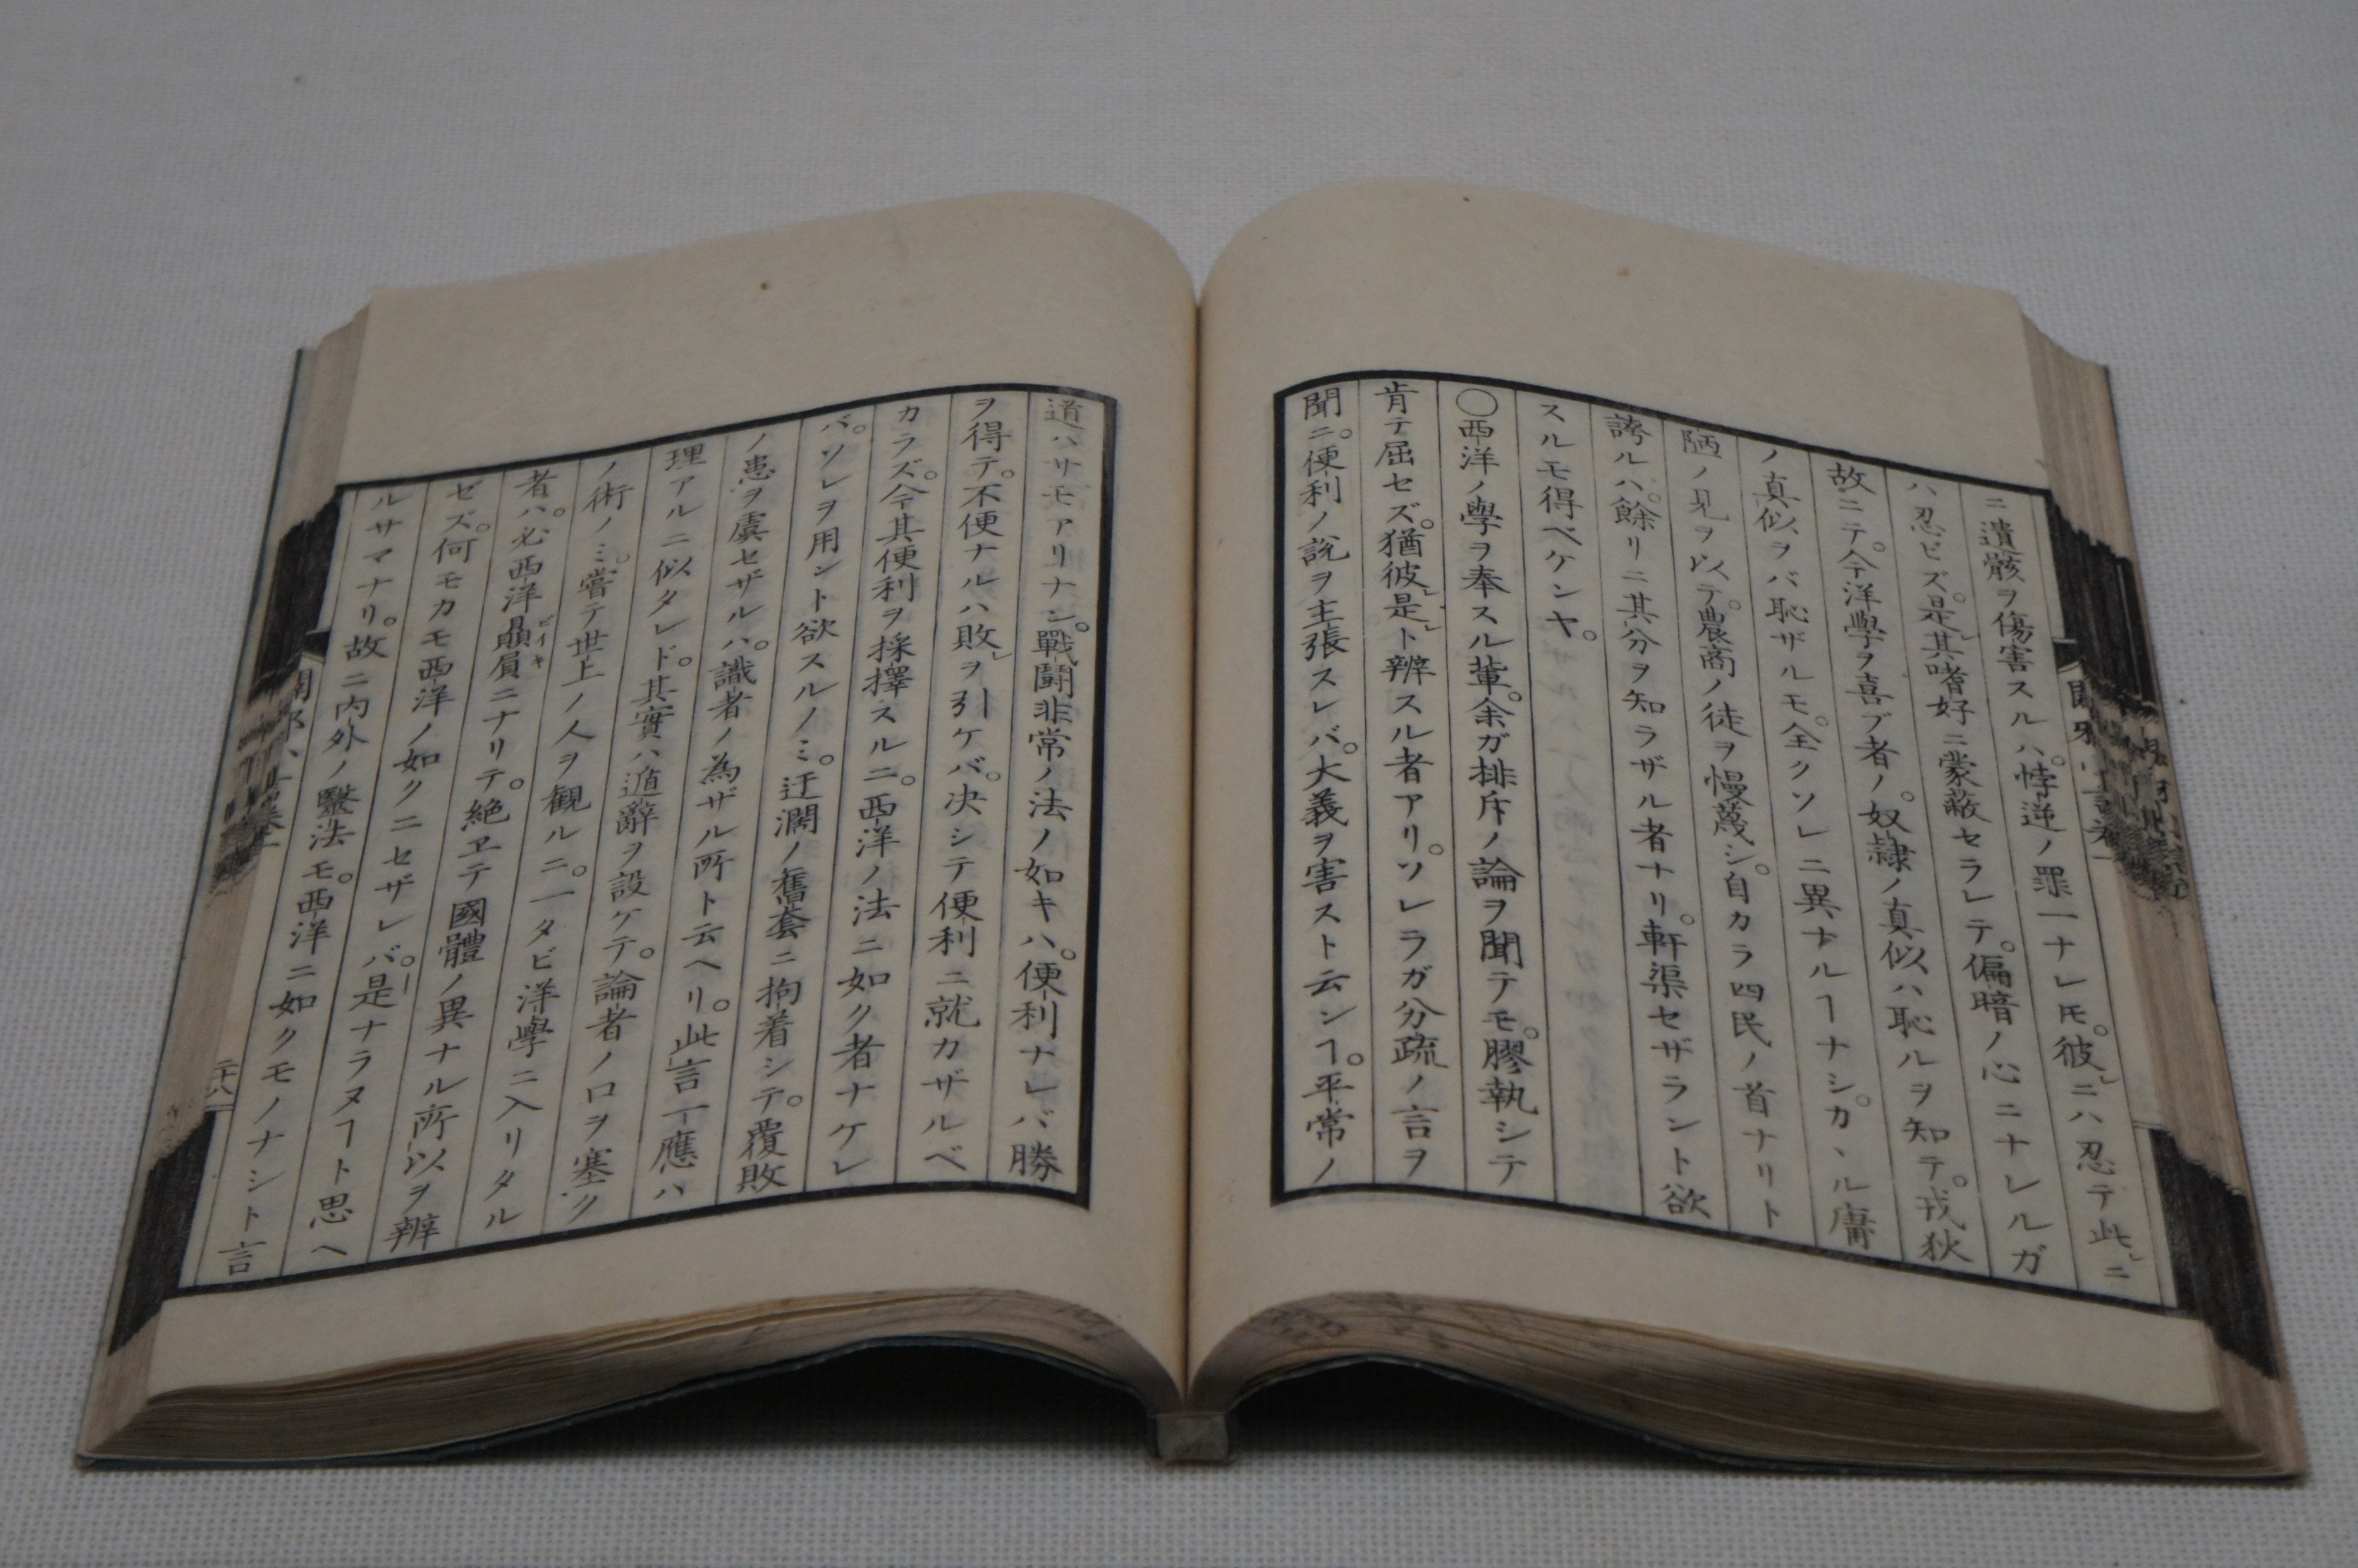 ニ遺骸ヲ傷害スルハ。悖逆ノ罪一ナレ𪜈。彼レニハ忍テ此レニ
ハ忍ビズ。是レ其嗜好ニ蒙蔽セラレテ。偏暗ノ心ニナレルガ
故ニテ。今洋學ヲ喜ブ者ノ。奴隷ノ真似ハ恥ルヲ知テ。戎狄
ノ真似ヲバ恥ザルモ。全クソレニ異ナルヿナシ。カヽル庸
陋ノ見ヲ以テ。農商ノ徒ヲ慢蔑シ。自カラ四民ノ首ナリト
誇ルハ。餘リニ其分ヲ知ラザル者ナリ。軒渠セザラント欲
スルモ得ベケンヤ。
〇西洋ノ學ヲ奉スル輩。余ガ排斥ノ論ヲ聞テモ。膠執シテ
肯テ屈セズ。猶彼レ是レト辨スル者アリ。ソレラガ分疏ノ言ヲ
聞ニ。便利ノ説ヲ主張スレバ。大義ヲ害スト云ンヿ。平常ノ
道ハサモアリナン。戰鬪非常ノ法ノ如キハ。便利ナレバ勝
ヲ得テ。不便ナルハ敗レヲ引ケバ。决シテ便利ニ就カザルベ
カラズ。今其便利ヲ採擇スルニ。西洋ノ法ニ如ク者ナケレ
バ。ソレヲ用ント欲スルノミ。迂濶ノ舊套ニ拘着シテ。覆敗
ノ患ヲ虞セザルハ。識者ノ為ザル所ト云ヘリ。此言一應ハ
理アルニ似タレド。其實ハ遁辭ヲ設ケテ。論者ノ口ヲ塞ク
ノ術ノミ。嘗テ世上ノ人ヲ観ルニ。一タビ洋學ニ入リタル
者ハ。必西洋贔屓ビイキニナリテ。絶ヱテ國體ノ異ナル所以ヲ辨
ゼズ。何モカモ西洋ノ如クニセザレバ。是ナラヌヿト思ヘ
ルサマナリ。故ニ内外ノ醫法モ。西洋ニ如クモノナシト言
二十八